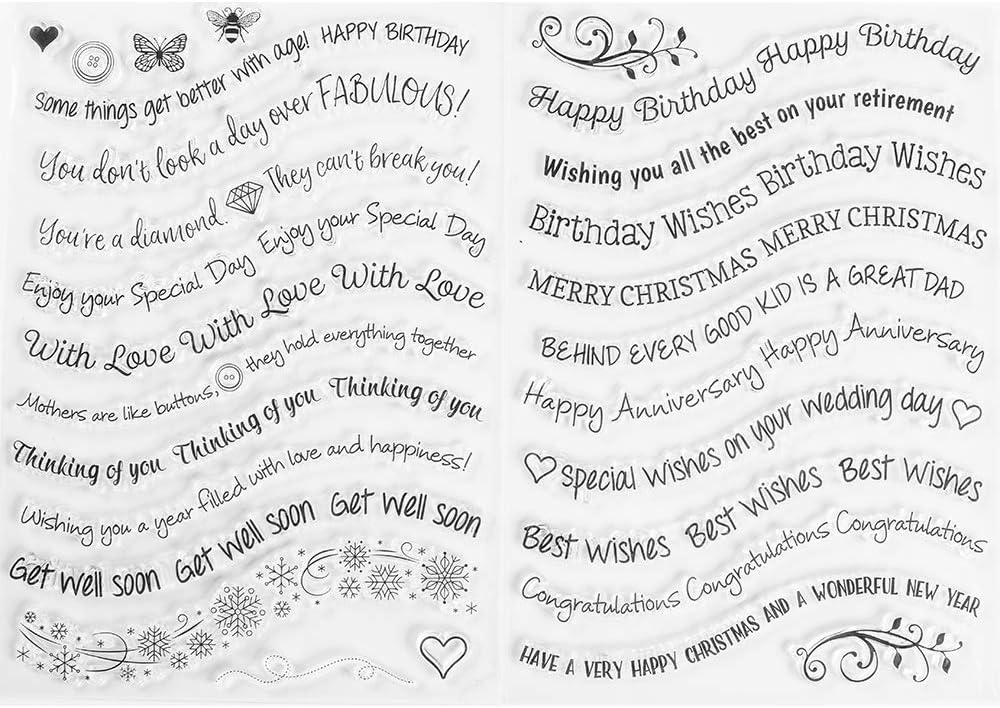 Some things get better with age! HAPPY BIRTHDAY
You don't look a day over FABULOUS!
You're a diamond. They can't break you!
Enjoy your Special Day Enjoy your Special Day
With Love With Love With Love
Mothers are like buttons, they hold everything together
Thinking of you Thinking of you Thinking of you
Wishing you a year filled with love and happiness!
Get well soon Get well soon Get well soon
Happy Birthday Happy Birthday Happy Birthday
Wishing you all the best on your retirement
Birthday Wishes Birthday Wishes
MERRY CHRISTMAS MERRY CHRISTMAS
BEHIND EVERY GOOD KID IS A GREAT DAD
Happy Anniversary Happy Anniversary
Special wishes on your wedding day
Best Wishes Best Wishes Best Wishes
Congratulations Congratulations Congratulations
HAVE A VERY HAPPY CHRISTMAS AND A WONDERFUL NEW YEAR